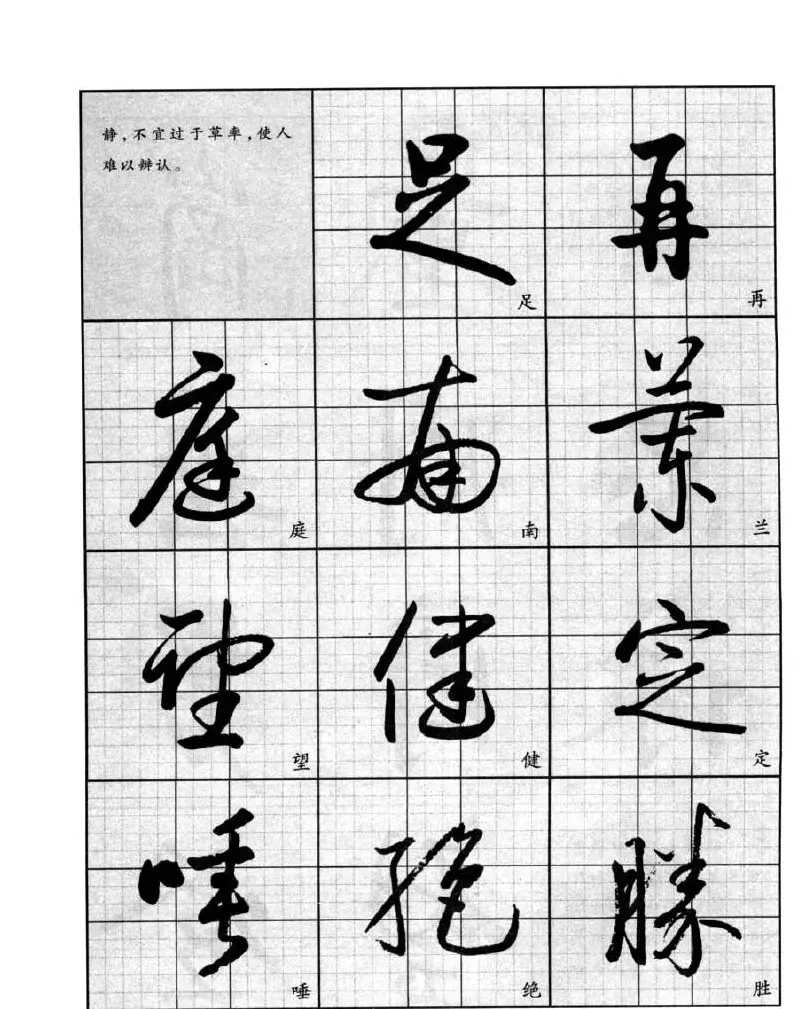 静，不宜过于草率，使人
难以辨认。
足 再
足 再
庭 南 蘭
庭 南 兰
望 健 定
望 健 定
唾 絶 勝
唾 绝 胜